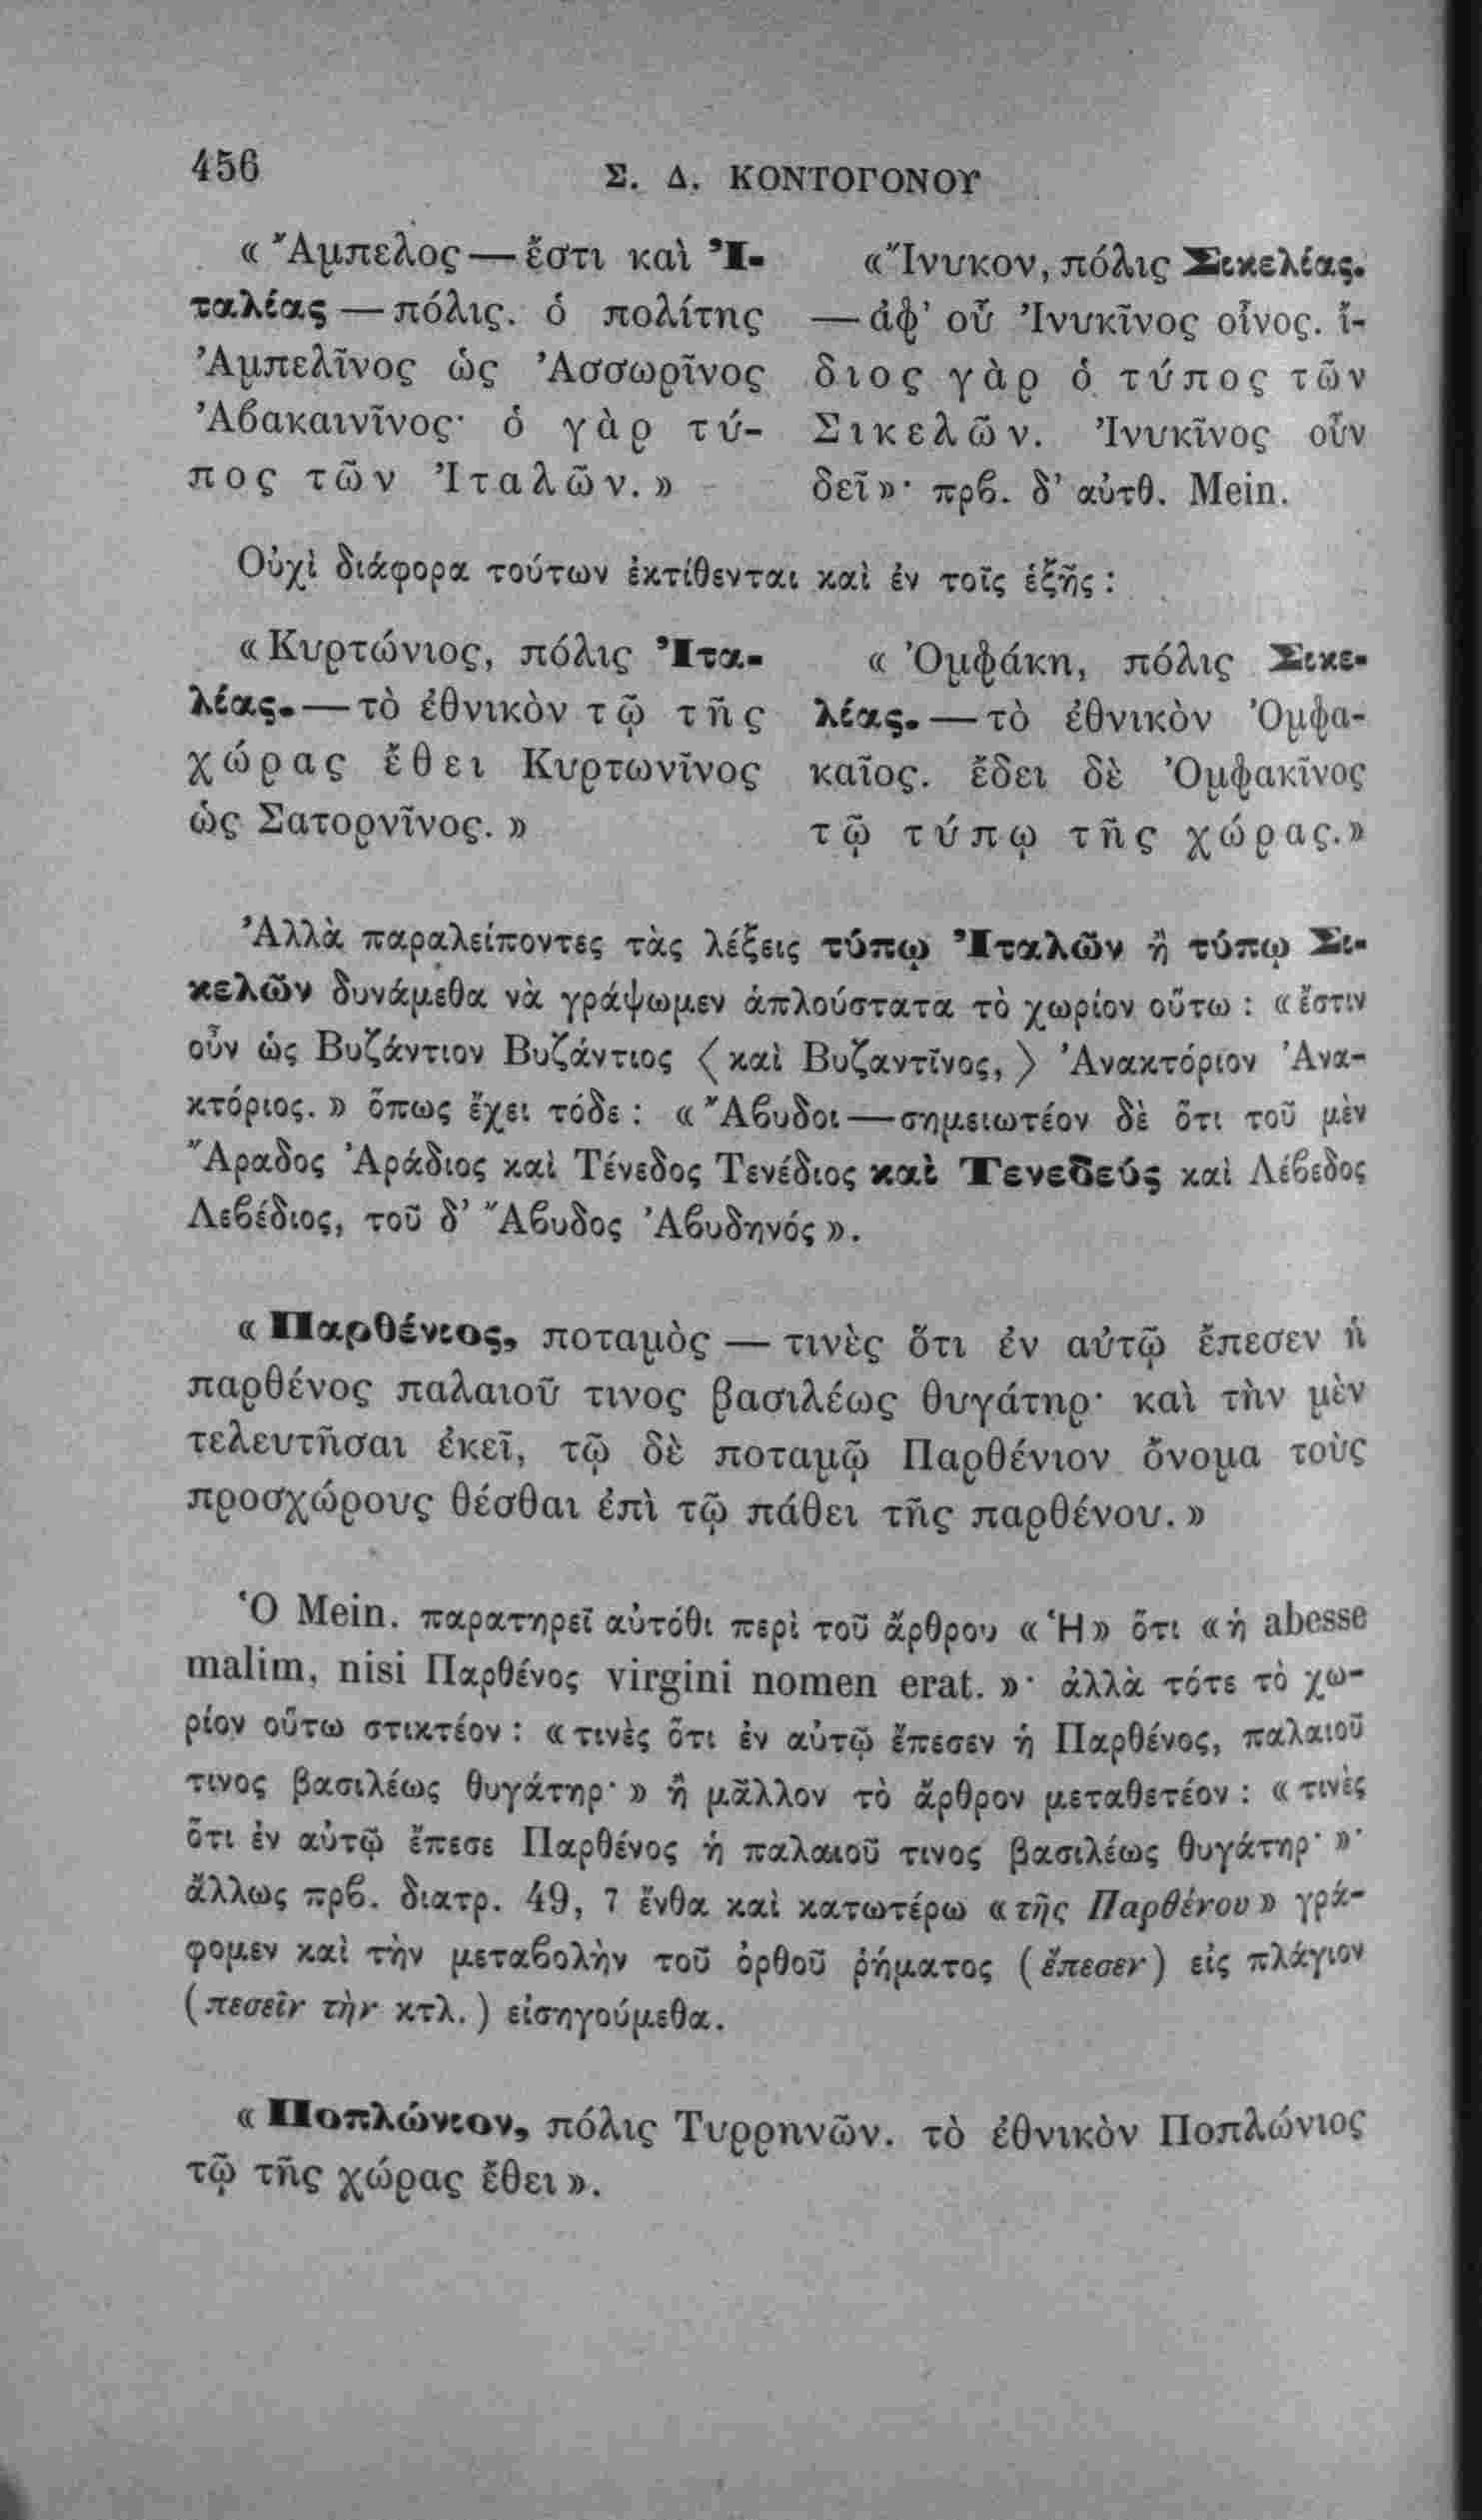 456
Σ. Δ. ΚΟΝΤΟΓΟΝΟΥ
« Ἄμπελος — ἔστι καὶ Ἰ-
ταλίας — πόλις. ὁ πολίτης
Ἀμπελῖνος ὡς Ἀσσωρῖνος
Ἀβακαινῖνος· ὁ γὰρ τύ-
πος τῶν Ἰταλῶν. »
« Ἴνυκον, πόλις Σικελίας.
— ἀφ’ οὗ Ἰνυκῖνος οἶνος. ἴ-
διος γὰρ ὁ τύπος τῶν
Σικελῶν. Ἰνυκῖνος οὖν
δεῖ »· πρβ. δ’ αὐτθ. Mein.
Οὐχὶ διάφορα τούτων ἐκτίθενται καὶ ἐν τοῖς ἑξῆς :
« Κυρτώνιος, πόλις Ἰτα-
λίας. — τὸ ἐθνικὸν τῷ τῆς
χώρας ἔθει Κυρτωνῖνος
ὡς Σατορνῖνος. »
« Ὀμφάκη, πόλις Σικε-
λίας. — τὸ ἐθνικὸν Ὀμφα-
καῖος. ἔδει δὲ Ὀμφακῖνος
τῷ τύπῳ τῆς χώρας. »
Ἀλλὰ παραλείποντες τὰς λέξεις τύπῳ Ἰταλῶν ἢ τύπῳ Σι-
κελῶν δυνάμεθα νὰ γράψωμεν ἁπλούστατα τὸ χωρίον οὕτω : « ἔστιν
οὖν ὡς Βυζάντιον Βυζάντιος ⟨ καὶ Βυζαντῖνος, ⟩ Ἀνακτόριον Ἀνα-
κτόριος. » ὅπως ἔχει τόδε : « Ἄβυδοι — σημειωτέον δὲ ὅτι τοῦ μὲν
Ἄραδος Ἀράδιος καὶ Τένεδος Τενέδιος καὶ Τενεδεύς καὶ Λέβεδος
Λεβέδιος, τοῦ δ’ Ἄβυδος Ἀβυδηνός ».
« Παρθένιος, ποταμὸς — τινὲς ὅτι ἐν αὐτῷ ἔπεσεν ἡ
παρθένος παλαιοῦ τινος βασιλέως θυγάτηρ· καὶ τὴν μὲν
τελευτῆσαι ἐκεῖ, τῷ δὲ ποταμῷ Παρθένιον ὄνομα τοὺς
προσχώρους θέσθαι ἐπὶ τῷ πάθει τῆς παρθένου. »
Ὁ Mein. παρατηρεῖ αὐτόθι περὶ τοῦ ἄρθρου « Ἡ » ὅτι « ἡ abesse
malim, nisi Παρθένος virgini nomen erat. »· ἀλλὰ τότε τὸ χω-
ρίον οὕτω στικτέον : « τινὲς ὅτι ἐν αὐτῷ ἔπεσεν ἡ Παρθένος, παλαιοῦ
τινος βασιλέως θυγάτηρ· » ἢ μᾶλλον τὸ ἄρθρον μεταθετέον : « τινὲς
ὅτι ἐν αὐτῷ ἔπεσε Παρθένος ἡ παλαιοῦ τινος βασιλέως θυγάτηρ· »·
ἄλλως πρβ. διατρ. 49, 7 ἔνθα καὶ κατωτέρω « τῆς Παρθένου » γρά-
φομεν καὶ τὴν μεταβολὴν τοῦ ὀρθοῦ ῥήματος ( ἔπεσεν ) εἰς πλάγιον
( πεσεῖν τὴν κτλ. ) εἰσηγούμεθα.
« Ποπλώνιον, πόλις Τυρρηνῶν. τὸ ἐθνικὸν Ποπλώνιος
τῷ τῆς χώρας ἔθει ».